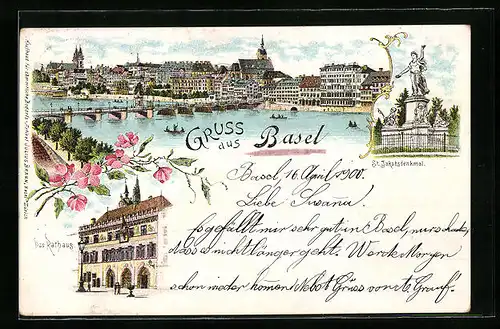 GRUSS
aus Basel
St. Jakobsdenkmal.
Das Rathaus.
Basel, 16. April 1900.
Liebe
es gefällt mir sehr gut in Basel, nur schade,
dass es nicht länger geht. Werde Morgen
schon wieder komen Nebst Grüss von